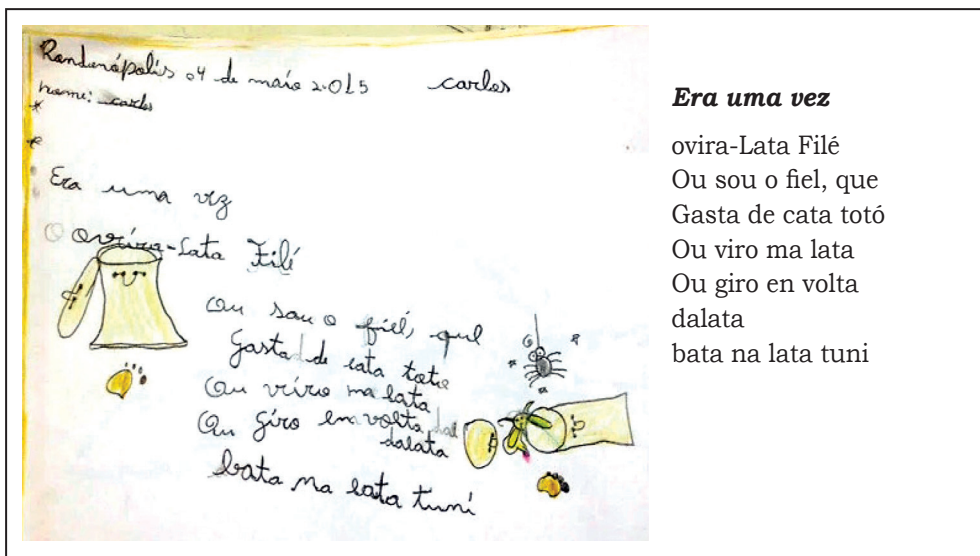 Rondonópolis 04 de maio 2015 carlos
nome: carlos
Era uma vez
O ovira-Lata Filé
Ou sou o fiel, que
Gasta de cata totó
Ou viro ma lata
Ou giro en volta
dalata
bata na lata tuni
Era uma vez
ovira-Lata Filé
Ou sou o fiel, que
Gasta de cata totó
Ou viro ma lata
Ou giro en volta
dalata
bata na lata tuni